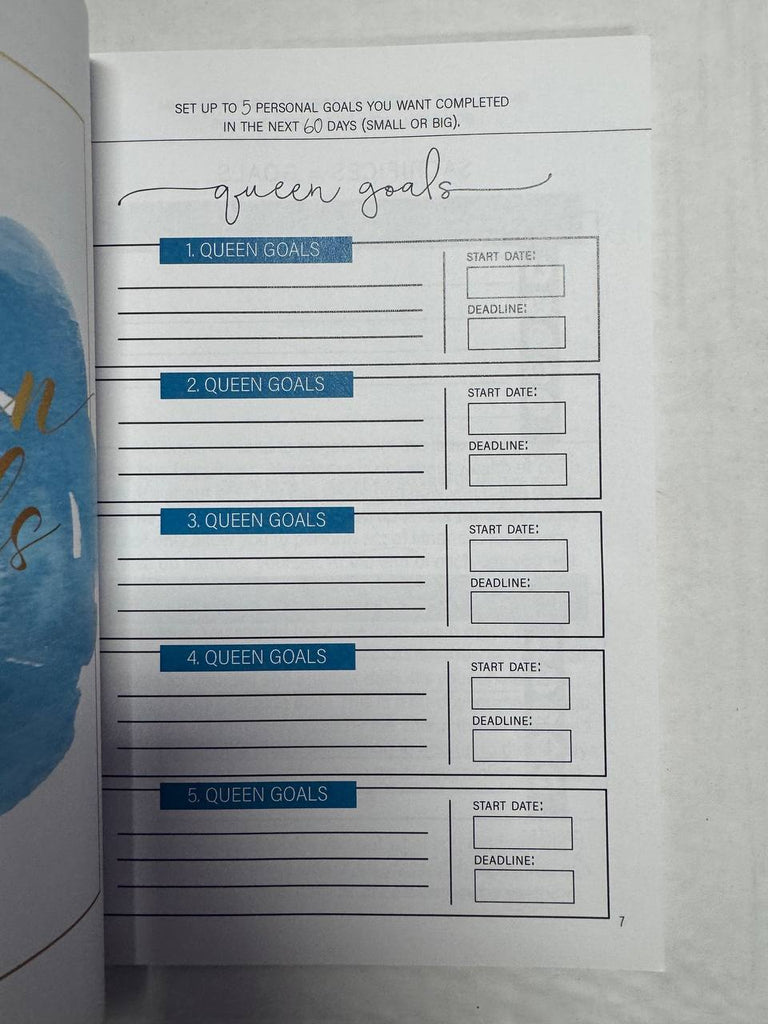 SET UP TO 5 PERSONAL GOALS YOU WANT COMPLETED
IN THE NEXT 60 DAYS (SMALL OR BIG).
queen goals
1. QUEEN GOALS
START DATE:
DEADLINE:
2. QUEEN GOALS
START DATE:
DEADLINE:
3. QUEEN GOALS
START DATE:
DEADLINE:
4. QUEEN GOALS
START DATE:
DEADLINE:
5. QUEEN GOALS
START DATE:
DEADLINE:
7